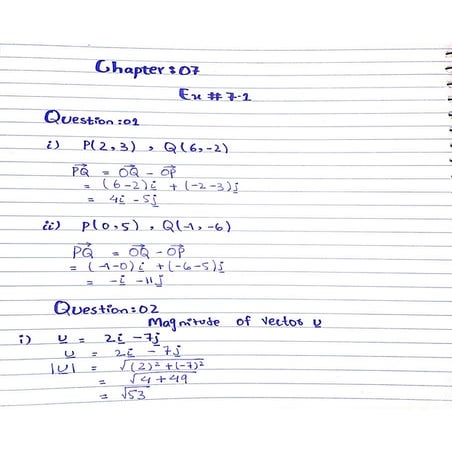 Chapter : 07
Ex # 7-1
Question : 01
i) P(2,3) , Q(6,-2)
PQ⃗ = OQ⃗ - OP⃗
= (6-2)i + (-2-3)j
= 4i - 5j
ii) P(0,5) , Q(-1,-6)
PQ⃗ = OQ⃗ - OP⃗
= (-1-0)i + (-6-5)j
= -i - 11j
Question : 02
Magnitude of vector u
i) u = 2i - 7j
u = 2i - 7j
|u| = √(2)² + (-7)²
= √4 + 49
= √53